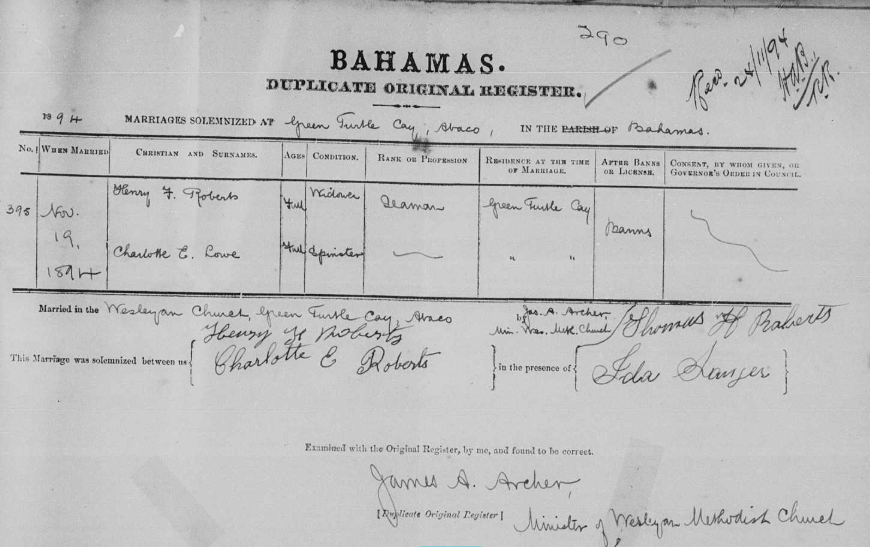 290
BAHAMAS.
DUPLICATE ORIGINAL REGISTER.
Recd. 24/11/94
R.R.
1894 MARRIAGES SOLEMNIZED AT Green Turtle Cay, Abaco, IN THE PARISH OF Bahamas.
No. WHEN MARRIED CHRISTIAN AND SURNAMES. AGES CONDITION. RANK OR PROFESSION RESIDENCE AT THE TIME OF MARRIAGE. AFTER BANNS OR LICENSE. CONSENT, BY WHOM GIVEN, OR GOVERNOR'S ORDER IN COUNCIL.
395 Nov. 19, 1894 Henry F. Roberts Full Widower Seaman Green Turtle Cay Banns
Charlotte E. Lowe Full Spinster " "
Married in the Wesleyan Church, Green Turtle Cay, Abaco by Jas. A. Archer, Min. Wes. Meth. Church
This Marriage was solemnized between us { Henry F Roberts
Charlotte E Roberts } in the presence of { Thomas H Roberts
Ida Sawyer }
Examined with the Original Register, by me, and found to be correct.
James A. Archer,
[Duplicate Original Register]
Minister of Wesleyan Methodist Church